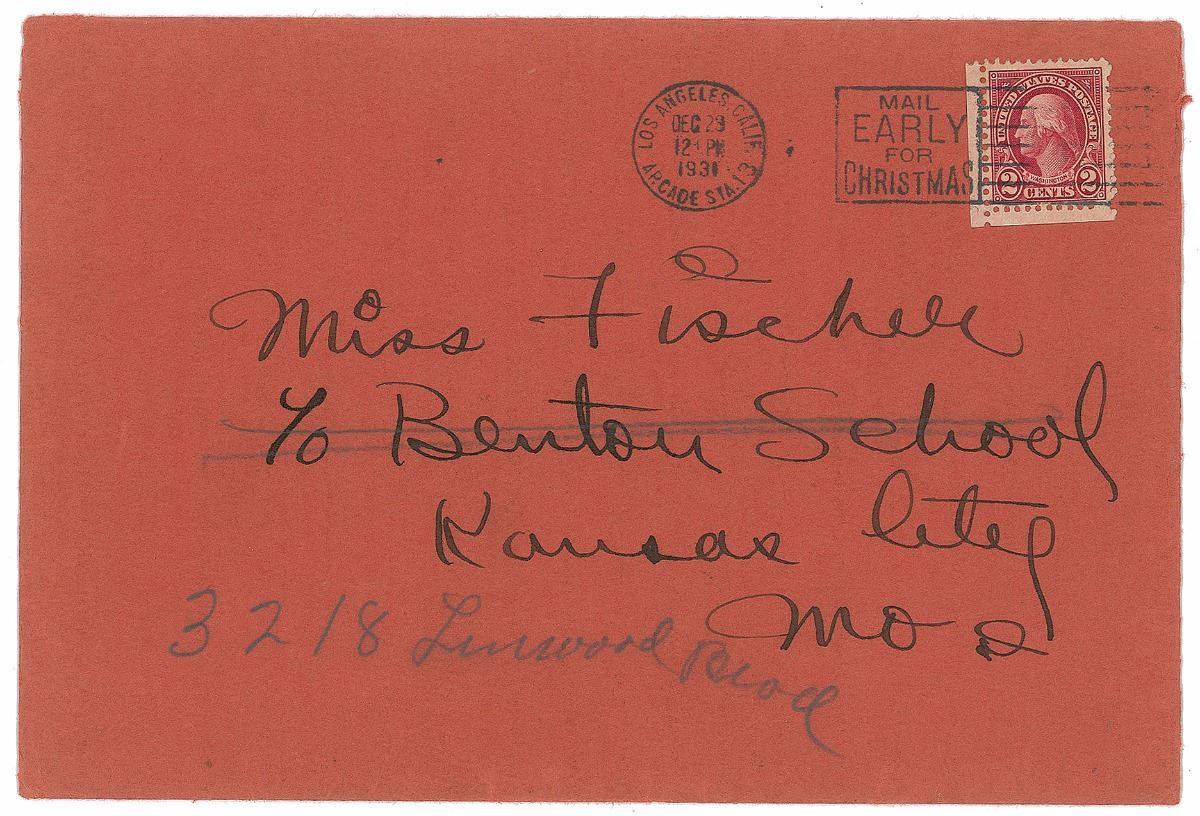 LOS ANGELES, CALIF.
DEC 23
12 PM
1931
ARCADE STA. 13
MAIL
EARLY
FOR
CHRISTMAS
UNITED STATES POSTAGE
WASHINGTON
2 CENTS 2
Miss Fischer
c/o Benton School
Kansas City
Mo
3218 Linwood Blvd